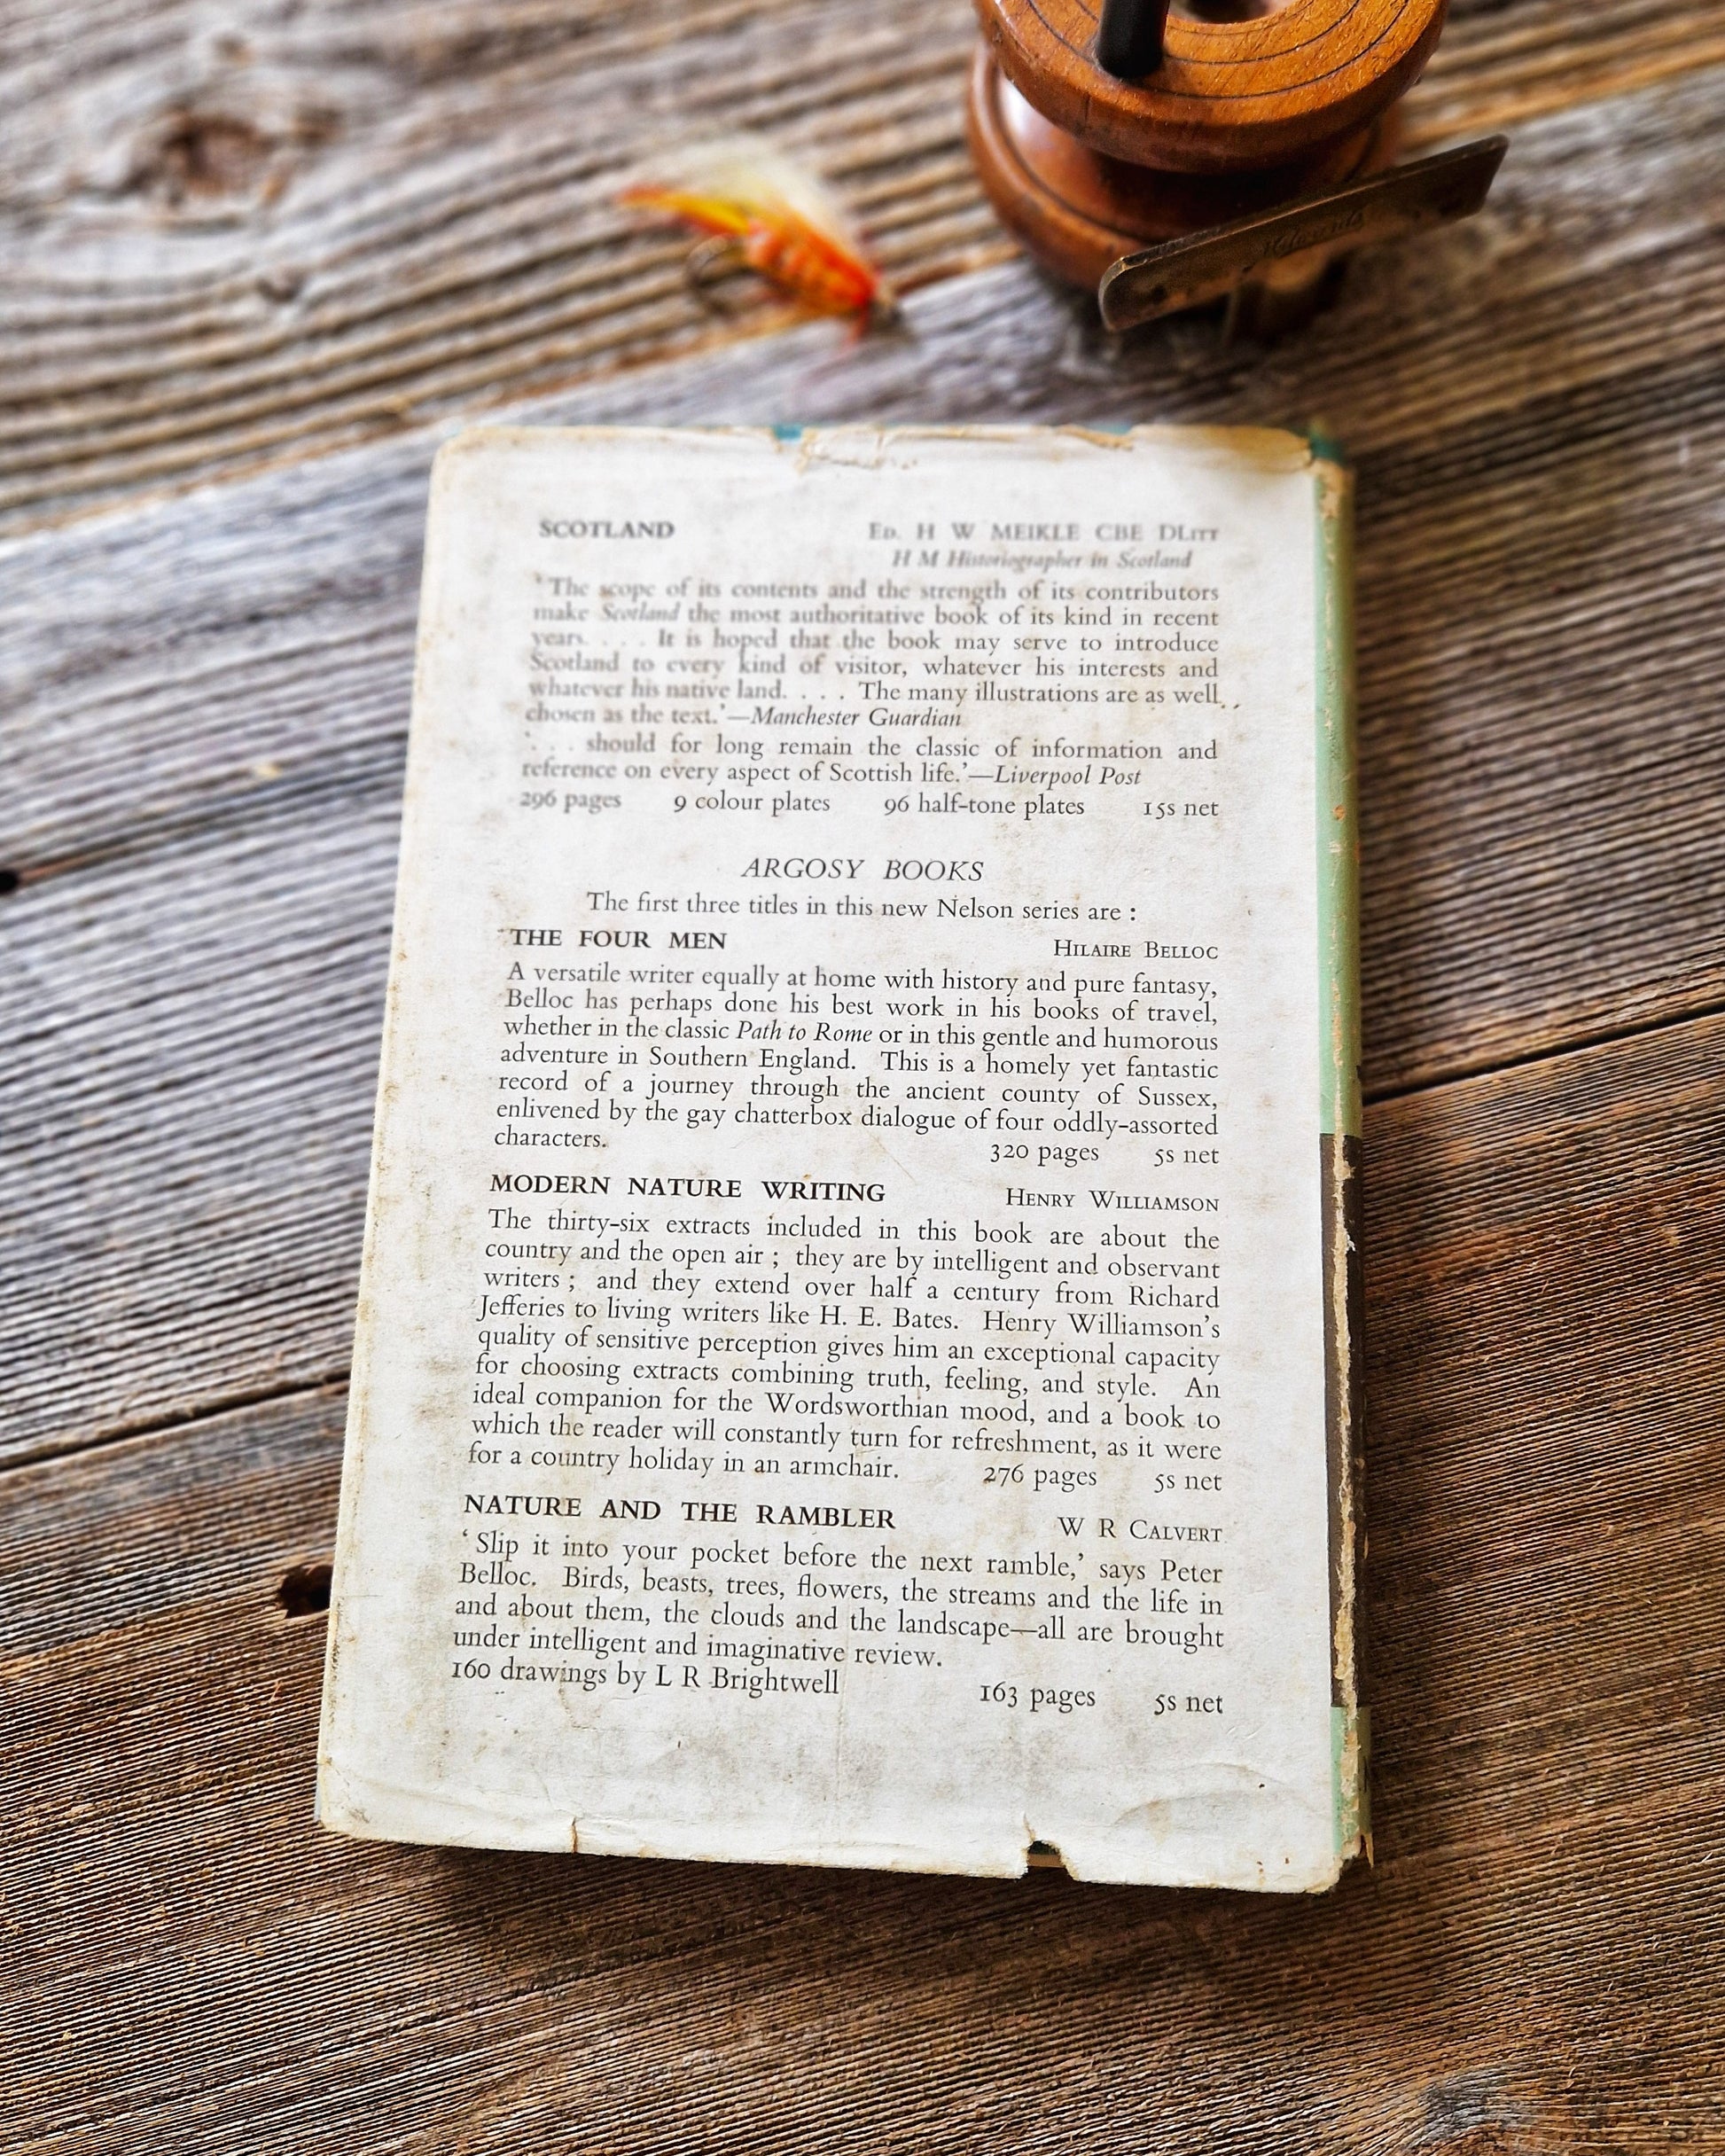 SCOTLAND Ed. H W MEIKLE CBE DLitt
H M Historiographer in Scotland
‘The scope of its contents and the strength of its contributors
make Scotland the most authoritative book of its kind in recent
years. . . . It is hoped that the book may serve to introduce
Scotland to every kind of visitor, whatever his interests and
whatever his native land. . . . The many illustrations are as well
chosen as the text.’—Manchester Guardian
‘. . . should for long remain the classic of information and
reference on every aspect of Scottish life.’—Liverpool Post
296 pages 9 colour plates 96 half-tone plates 15s net
ARGOSY BOOKS
The first three titles in this new Nelson series are :
THE FOUR MEN Hilaire Belloc
A versatile writer equally at home with history and pure fantasy,
Belloc has perhaps done his best work in his books of travel,
whether in the classic Path to Rome or in this gentle and humorous
adventure in Southern England. This is a homely yet fantastic
record of a journey through the ancient county of Sussex,
enlivened by the gay chatterbox dialogue of four oddly-assorted
characters. 320 pages 5s net
MODERN NATURE WRITING Henry Williamson
The thirty-six extracts included in this book are about the
country and the open air ; they are by intelligent and observant
writers ; and they extend over half a century from Richard
Jefferies to living writers like H. E. Bates. Henry Williamson’s
quality of sensitive perception gives him an exceptional capacity
for choosing extracts combining truth, feeling, and style. An
ideal companion for the Wordsworthian mood, and a book to
which the reader will constantly turn for refreshment, as it were
for a country holiday in an armchair. 276 pages 5s net
NATURE AND THE RAMBLER W R Calvert
‘Slip it into your pocket before the next ramble,’ says Peter
Belloc. Birds, beasts, trees, flowers, the streams and the life in
and about them, the clouds and the landscape—all are brought
under intelligent and imaginative review.
160 drawings by L R Brightwell 163 pages 5s net